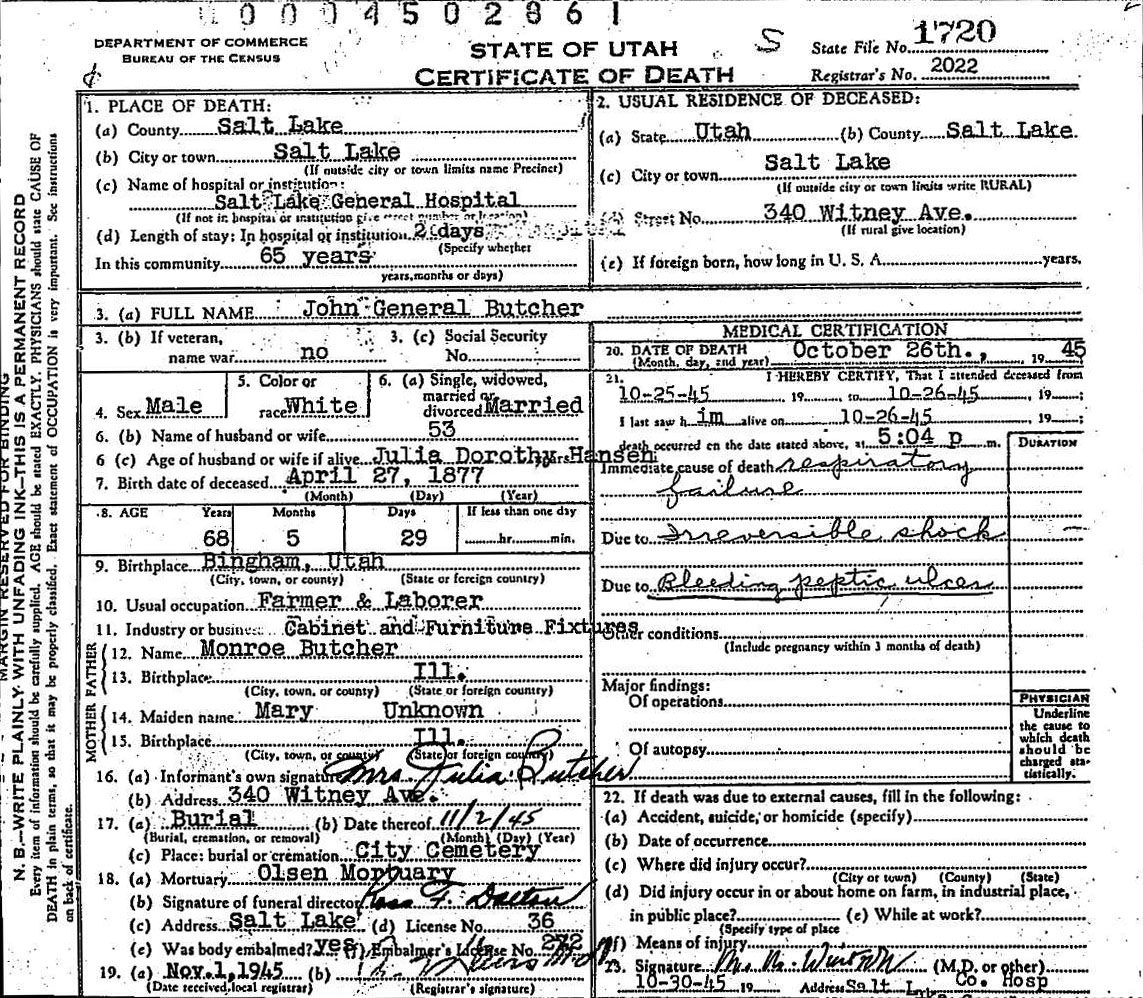 0004502861
DEPARTMENT OF COMMERCE
BUREAU OF THE CENSUS
STATE OF UTAH
CERTIFICATE OF DEATH
S
State File No. 1720
Registrar's No. 2022
MARGIN RESERVED FOR BINDING
N. B.—WRITE PLAINLY WITH UNFADING INK—THIS IS A PERMANENT RECORD
Every item of information should be carefully supplied. AGE should be stated EXACTLY. PHYSICIANS should state CAUSE OF
DEATH in plain terms, so that it may be properly classified. Exact statement of OCCUPATION is very important. See instructions
on back of certificate.
1. PLACE OF DEATH:
(a) County Salt Lake
(b) City or town Salt Lake
(If outside city or town limits name Precinct)
(c) Name of hospital or institution:
Salt Lake General Hospital
(If not in hospital or institution give street number or location)
(d) Length of stay: In hospital or institution 2 days
(Specify whether
In this community 65 years
years, months or days)
2. USUAL RESIDENCE OF DECEASED:
(a) State Utah (b) County Salt Lake
(c) City or town Salt Lake
(If outside city or town limits write RURAL)
(d) Street No. 340 Witney Ave.
(If rural give location)
(e) If foreign born, how long in U. S. A. years.
3. (a) FULL NAME John General Butcher
3. (b) If veteran, name war no
3. (c) Social Security No.
4. Sex Male
5. Color or race White
6. (a) Single, widowed, married or divorced Married
6. (b) Name of husband or wife 53
6 (c) Age of husband or wife if alive Julia Dorothy Hansen years
7. Birth date of deceased April 27, 1877
(Month) (Day) (Year)
8. AGE Years Months Days If less than one day
68 5 29 hr. min.
9. Birthplace Bingham, Utah
(City, town, or county) (State or foreign country)
10. Usual occupation Farmer & Laborer
11. Industry or business Cabinet and Furniture Fixtures
FATHER
12. Name Monroe Butcher
13. Birthplace Ill.
(City, town, or county) (State or foreign country)
MOTHER
14. Maiden name Mary Unknown
15. Birthplace Ill.
(City, town, or county) (State or foreign country)
16. (a) Informant's own signature Mrs Julia Butcher
(b) Address 340 Witney Ave.
17. (a) Burial (b) Date thereof 11/2/45
(Burial, cremation, or removal) (Month) (Day) (Year)
(c) Place: burial or cremation City Cemetery
18. (a) Mortuary Olsen Mortuary
(b) Signature of funeral director Ross F. Dalton
(c) Address Salt Lake (d) License No. 36
(e) Was body embalmed? yes (f) Embalmer's License No. 272
19. (a) Nov. 1, 1945 (b)
(Date received local registrar) (Registrar's signature)
MEDICAL CERTIFICATION
20. DATE OF DEATH October 26th., 19 45
(Month, day, and year)
21. I HEREBY CERTIFY, That I attended deceased from
10-25-45 19 to 10-26-45, 19 ;
I last saw h im alive on 10-26-45 , 19 ;
death occurred on the date stated above, at 5:04 p m.
DURATION
Immediate cause of death respiratory
failure
Due to Irreversible shock
Due to Bleeding peptic ulcer
Other conditions
(Include pregnancy within 3 months of death)
Major findings:
Of operations
Of autopsy
PHYSICIAN
Underline
the cause to
which death
should be
charged sta-
tistically.
22. If death was due to external causes, fill in the following:
(a) Accident, suicide, or homicide (specify)
(b) Date of occurrence
(c) Where did injury occur?
(City or town) (County) (State)
(d) Did injury occur in or about home on farm, in industrial place,
in public place? (e) While at work?
(Specify type of place
(f) Means of injury
23. Signature (M.D. or other)
10-30-45 19 Address Salt Co. Hosp